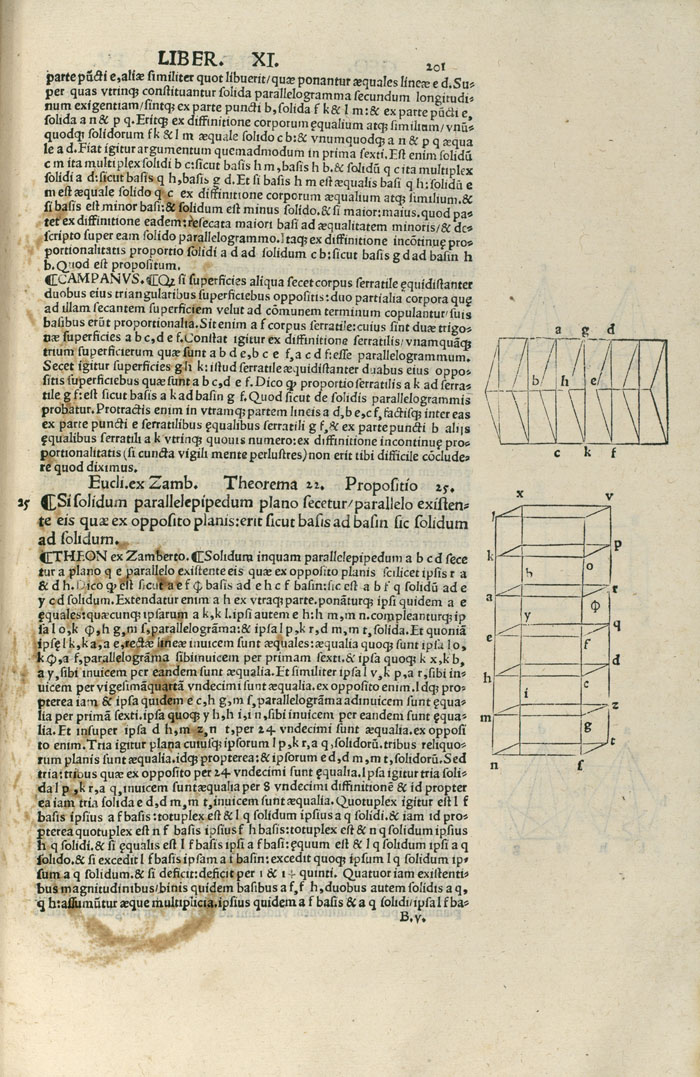 LIBER. XI. 201
parte pūcti e, aliæ similiter quot libuerit/quæ ponantur æquales lineæ e d. Su-
per quas vtrinqꝫ constituantur solida parallelogramma secundum longitudi-
num exigentiam/sintqꝫ ex parte puncti b, solida f k & l m: & ex parte pūcti e,
solida a n & p q. Eritqꝫ ex diffinitione corporum ęqualium atqꝫ similium/vnū-
quodqꝫ solidorum f k & l m æquale solido c b: & vnumquodqꝫ a n & p q æqua
le a d. Fiat igitur argumentum quemadmodum in prima sexti. Est enim solidū
c m ita multiplex solidi b c: sicut basis h m, basis h b. & solidū q c ita multiplex
solidi a d: sicut basis q h, basis g d. Et si basis h m est æqualis basi q h: solidū c
m est æquale solido q c ex diffinitione corporum æqualium atqꝫ similium. &
si basis est minor basi: & solidum est minus solido. & si maior: maius. quod pa-
tet ex diffinitione eadem: resecata maiori basi ad æqualitatem minoris/ & de-
scripto super eam solido parallelogrammo. Itaqꝫ ex diffinitione incōtinuę pro-
portionalitatis proportio solidi a d ad solidum c b: sicut basis g d ad basin h
b. Quod est propositum.
¶CAMPANVS. ¶Qꝫ si superficies aliqua secet corpus serratile ęquidistanter
duobus eius triangularibus superficiebus oppositis: duo partialia corpora quę
ad illam secantem superficiem velut ad cōmunem terminum copulantur/suis
basibus erūt proportionalia. Sit enim a f corpus serratile: cuius sint duæ trigo-
næ superficies a b c, d e f. Constat igitur ex diffinitione serratilis/vnamquāqꝫ
trium superficierum quæ sunt a b d e, b c e f, a c d f: esse parallelogrammum.
Secet igitur superficies g h k: istud serratile æquidistanter duabus eius oppo-
sitis superficiebus quæ sunt a b c, d e f. Dico ꝙ proportio serratilis a k ad serra-
tile g f: est sicut basis a k ad basin g f. Quod sicut de solidis parallelogrammis
probatur. Protractis enim in vtramqꝫ partem lineis a d, b e, c f, factisqꝫ inter eas
ex parte puncti e serratilibus ęqualibus serratili g f, & ex parte puncti b aliis
ęqualibus serratili a k vtrinqꝫ quouis numero: ex diffinitione incontinuę pro-
portionalitatis (si cuncta vigili mente perlustres) non erit tibi difficile cōclude-
re quod diximus.
Eucli. ex Zamb. Theorema 22. Propositio 25.
25 ¶Si solidum parallelepipedum plano secetur/parallelo existen-
te eis quæ ex opposito planis: erit sicut basis ad basin sic solidum
ad solidum.
¶THEON ex Zamberto. ¶Solidum inquam parallelepipedum a b c d sece
tur a plano q e parallelo existente eis quæ ex opposito planis scilicet ipsis r a
& d h. Dico ꝙ est sicut a e f φ basis ad e h c f basin: sic est a b f q solidū ad e
y c d solidum. Extendatur enim a h ex vtraqꝫ parte. ponāturqꝫ ipsi quidem a e
ęquales: quæcunqꝫ ipsarum a k, k l. ipsi autem e h: h m, m n. compleanturqꝫ ip
sa l o, k φ, h g, m s, parallelográma: & ipsa l p, k r, d m, m t, solida. Et quoniā
ipsę l k, k a, a e, rectæ lineæ inuicem sunt æquales: æqualia quoqꝫ sunt ipsa l o,
k φ, a f, parallelográma sibiinuicem per primam sexti. & ipsa quoqꝫ k x, k b,
a y, sibi inuicem per eandem sunt æqualia. Et similiter ipsa l v, k p, a r, sibi in-
uicem per vigesimāquartā vndecimi sunt æqualia. ex opposito enim. Idqꝫ pro-
pterea iam & ipsa quidem e c, h g, m s, parallelográma adinuicem sunt ęqua-
lia per primā sexti. ipsa quoqꝫ y h, h i, i n, sibi inuicem per eandem sunt ęqua-
lia. Et insuper ipsa d h, m z, n t, per 24 vndecimi sunt æqualia. ex opposi
to enim. Tria igitur plana cuiusqꝫ ipsorum l p, k r, a q, solidorū. tribus reliquo-
rum planis sunt æqualia. idqꝫ propterea: & ipsorum e d, d m, m t, solidorū. Sed
tria: tribus quæ ex opposito per 24 vndecimi sunt ęqualia. Ipsa igitur tria soli-
da l p, k r, a q, inuicem sunt æqualia per 8 vndecimi diffinitionē & id propter
ea iam tria solida e d, d m, m t, inuicem sunt æqualia. Quotuplex igitur est l f
basis ipsius a f basis: totuplex est & l q solidum ipsius a q solidi. & iam id pro-
pterea quotuplex est n f basis ipsius f h basis: totuplex est & n q solidum ipsius
h q solidi. & si ęqualis est l f basis ipsi a f basi: ęquum est & l q solidum ipsi a q
solido. & si excedit l f basis ipsam a f basin: excedit quoqꝫ ipsum l q solidum ip-
sum a q solidum. & si deficit: deficit per 1 & 14 quinti. Quatuor iam existenti-
bus magnitudinibus/binis quidem basibus a f, f h, duobus autem solidis a q,
q h: assumūtur æque multiplicia. ipsius quidem a f basis & a q solidi/ipsa l f ba-
B. v.
a g d
b h e
c k f
x v
l
k p
h o
a r
φ
y q
e f
d
h c
i z
m g
t
n s